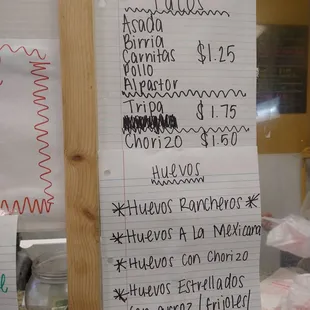 Tacos
Asada
Birria
Carnitas $1.25
Pollo
Al pastor
Tripa $1.75
Chorizo $1.50
Huevos
*Huevos Rancheros*
*Huevos A La Mexicana
*Huevos con Chorizo
*Huevos Estrellados
con arroz/frijoles/